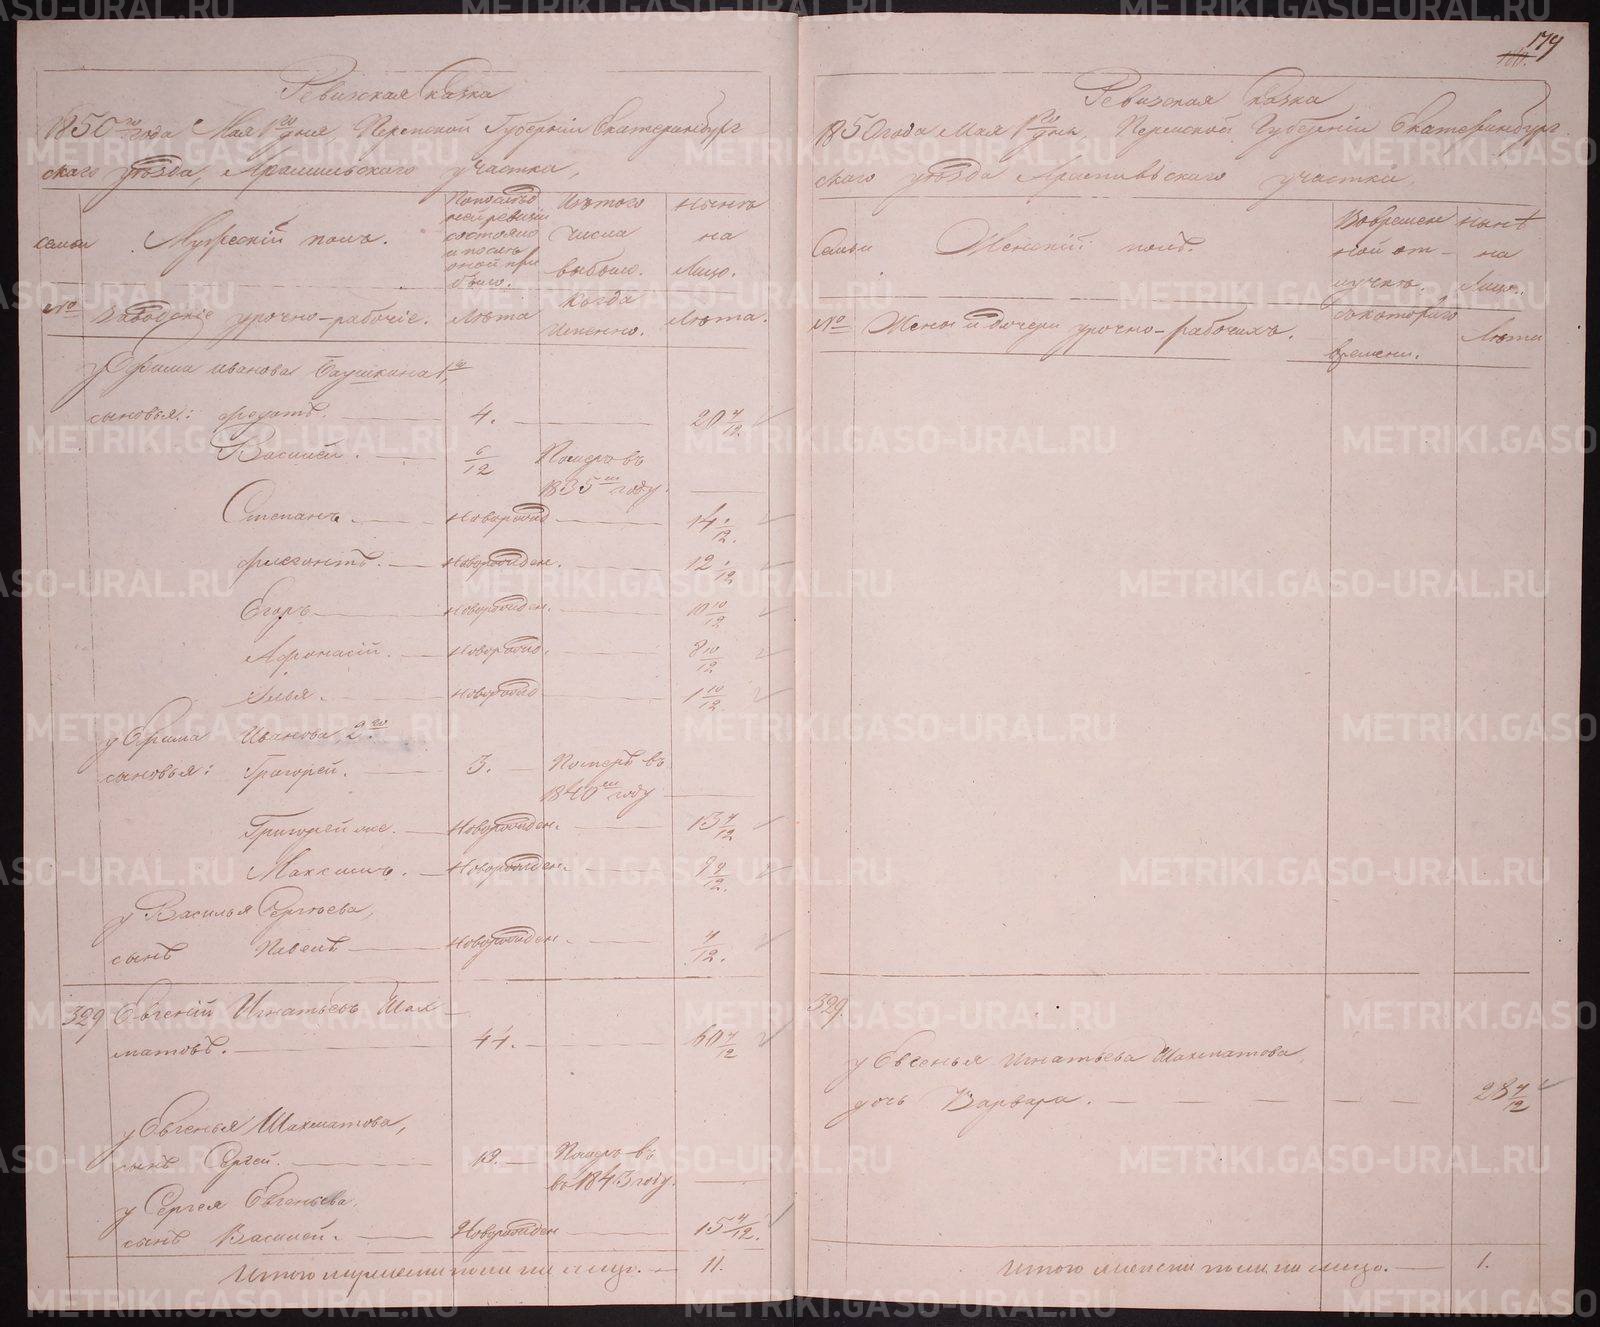 Ревизская сказка
1850го года Мая 1го дня, Пермской Губернии Екатеринбург
скаго уѣзда, Арамильскаго участка,
семьи
Мужескій полъ.
По послѣд
ней ревизіи
состояло
и послѣ
оной при
было.
Изъ того
числа
выбыло.
нынѣ
на
лицо.
№
Заводскіе урочно-рабочіе.
Лѣта
Когда
именно.
Лѣта.
у Ефима Иванова 1го
сыновья: Федотъ. 4. 20 4/12
Василей. 6/12 Померъ въ
1835м году.
Степанъ. новорожд 14 /12.
Флегонтъ. новорожден. 12 /12
Егоръ новорожден. 10 10/12
Афонасій. новорожд. 8 10/12
Илья. новорожд 1 10/12
у Ефима Иванова 2го
сыновья: Григорей. 3. Померъ въ
1840м году
Григорей же. Новорожден. 13 4/12
Максимъ. Новорожден. 9 9/12
у Василья Сергѣева,
сынъ Павелъ новорожден. 4/12.
329 Евгеній Игнатьевъ Шах-
матовъ. 44. 60 4/12
у Евгенья Шахматова,
сынъ Сергей. 19. Померъ въ
въ 1843 году.
у Сергея Евгеньева,
сынъ Василей. Новорожден 15 4/12.
Итого мужескаго пола на лицо. 11.
179
180.
Ревизская Сказка
1850 года Мая 1го дня, Пермской Губерніи Екатеринбург
скаго уѣзда Арамильскаго участка.
Семьи
Женскій полъ.
Во времен
ной от-
лучкѣ.
нынѣ
на
лицо.
№
Жены и дочери урочно-рабочихъ.
Съ котораго
времени.
Лѣта
329.
у Евгенья Игнатьева Шахматова,
дочь Варвара. 28 4/12
Итого женска пола на лицо. 1.
METRIKI.GASO-URAL.RU